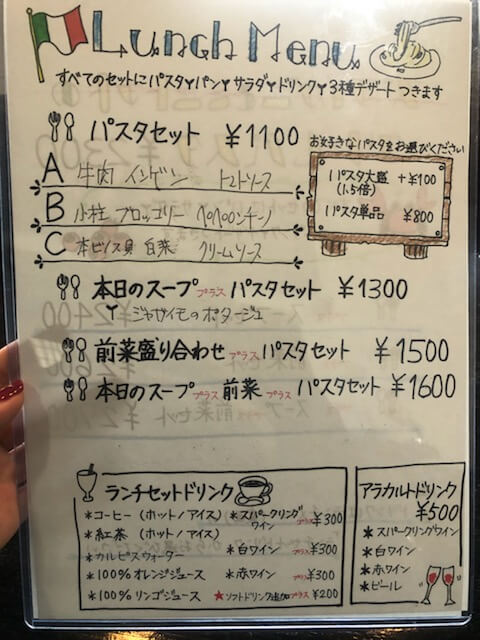 Lunch Menu
すべてのセットにパスタ パン サラダ ドリンク 3種デザートつきます
パスタセット ¥1100
お好きなパスタをお選びください
A 牛肉 インゲン トマトソース
B 小柱 ブロッコリー ペペロンチーノ
C 本ビノス貝 白菜 クリームソース
パスタ大盛 +¥100
(1.5倍)
パスタ単品 ¥800
本日のスープ プラス パスタセット ¥1300
ジャガイモのポタージュ
前菜盛り合わせ プラス パスタセット ¥1500
本日のスープ プラス 前菜 プラス パスタセット ¥1600
ランチセットドリンク
*コーヒー (ホット/アイス)
*紅茶 (ホット/アイス)
*カルピスウォーター
*100%オレンジジュース
*100%リンゴジュース
*スパークリング
ワイン プラス¥300
*白ワイン プラス¥300
*赤ワイン プラス¥300
★ソフトドリンク追加プラス ¥200
アラカルトドリンク
¥500
*スパークリングワイン
*白ワイン
*赤ワイン
*ビール